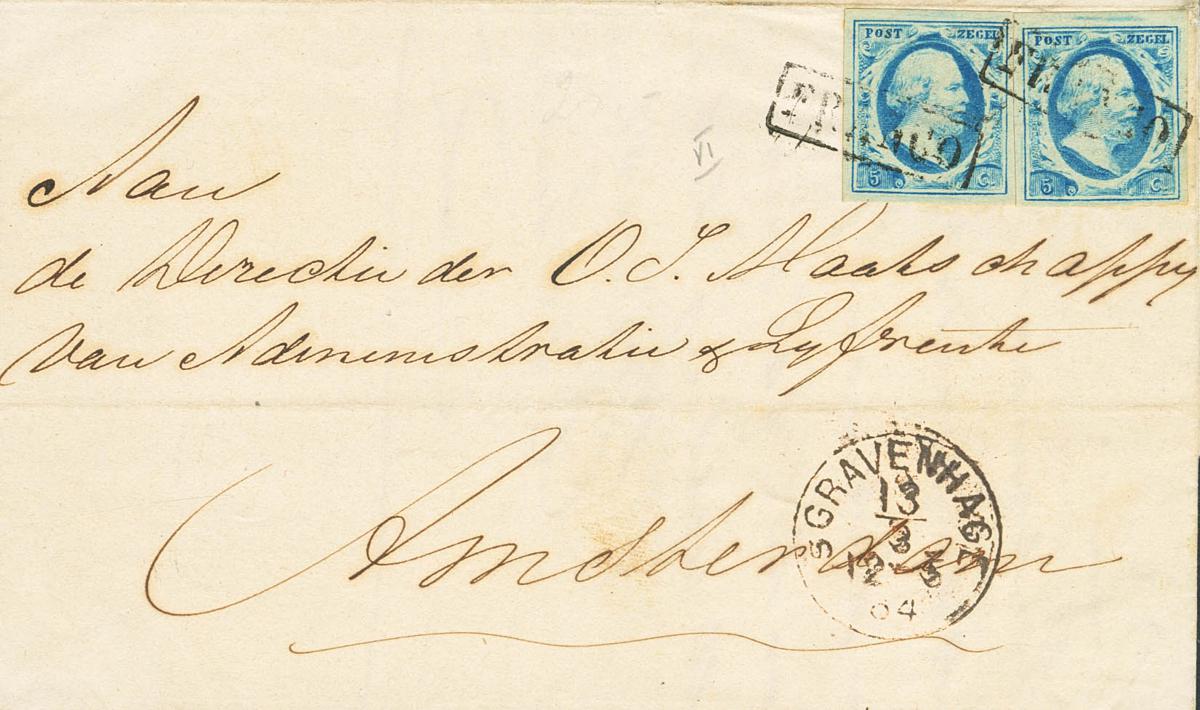 POST ZEGEL POST ZEGEL
FRANCO FRANCO
5 C. 5 C.
VI
Aan
de Directie der O. I. Maatschappy
van Administratie & Lyfrente
Amsterdam
SGRAVENHAGE
13
3
12-3
64